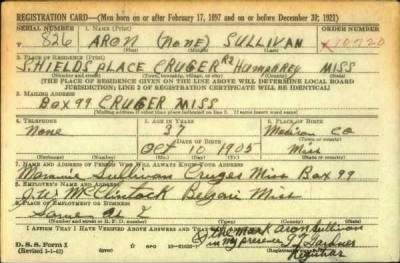 REGISTRATION CARD—(Men born on or after February 17, 1897 and on or before December 31, 1921)
SERIAL NUMBER 1. NAME (Print) ORDER NUMBER
826 ARON (NONE) SULLIVAN 10720
(First) (Middle) (Last)
3. PLACE OF RESIDENCE (Print)
SHIELDS PLACE CRUGER R2 Humphrey MISS
(Number and street) (Town, township, village, or city) (County) (State)
[THE PLACE OF RESIDENCE GIVEN ON THE LINE ABOVE WILL DETERMINE LOCAL BOARD
JURISDICTION; LINE 2 OF REGISTRATION CERTIFICATE WILL BE IDENTICAL]
3. MAILING ADDRESS
Box 99 CRUGER MISS
[Mailing address if other than place indicated on line 2. If same insert word same]
4. TELEPHONE 5. AGE IN YEARS 6. PLACE OF BIRTH
None 37 Madison CO
DATE OF BIRTH (Town or county)
OCT 10 1905 Miss
(Exchange) (Number) (Mo.) (Day) (Yr.) (State or country)
7. NAME AND ADDRESS OF PERSON WHO WILL ALWAYS KNOW YOUR ADDRESS
Mammie Sullivan Cruger Miss Box 99
8. EMPLOYER'S NAME AND ADDRESS
McClintock Miss
9. PLACE OF EMPLOYMENT OR BUSINESS
Same
(Number and street or R. F. D. number) (Town) (County) (State)
I AFFIRM THAT I HAVE VERIFIED ABOVE ANSWERS AND THAT THEY ARE TRUE.
mark aron Sullivan
D. S. S. Form 1 in my presence
(Revised 1-1-42) GPO Registrar